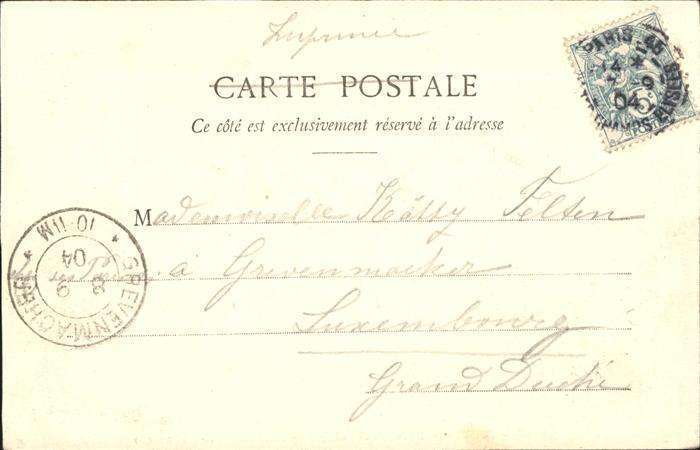 Imprimé
CARTE POSTALE
Ce côté est exclusivement réservé à l'adresse
PARIS
04
5
POSTES
Mademoiselle Kätty Felten
à Grevenmacher
Luxembourg
Grand Duché
GREVENMACHER
10-11M
8 9
04